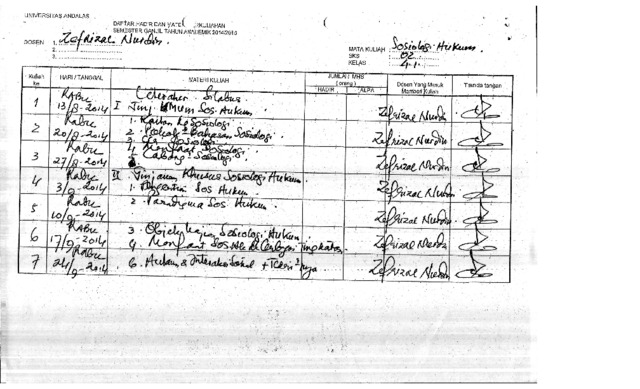 UNIVERSITAS ANDALAS
DAFTAR HADIR DAN MATERI PERKULIAHAN
SEMESTER GANJIL TAHUN AKADEMIK 2014/2015
DOSEN 1. Zefrizal Nurdin
2.
3.
MATA KULIAH : Sosiologi Hukum
SKS : 02
KELAS
Kuliah ke HARI / TANGGAL MATERI KULIAH JUMLAH MHS (orang) HADIR ALPA Dosen Yang Masuk Memberi Kuliah Tanda tangan
1 Rabu 13/8-2014 Silabus
I Tinj Umum Sos Hukum Zefrizal Nurdin
2 Rabu 20/8-2014 1. Kaitan Sosiologi
2. Pokok² Bahasan Sosiologi Zefrizal Nurdin
3 Rabu 27/8-2014 Sosiologi
Cabang² Sosiologi Zefrizal Nurdin
4 Rabu 3/9-2014 II Tinjauan Khusus Sosiologi Hukum
1. Sos Hukum Zefrizal Nurdin
5 Rabu 10/9-2014 2. Paradigma Sos Hukum Zefrizal Nurdin
6 Rabu 17/9-2014 3. Objek Sosiologi Hukum
4. Zefrizal Nurdin
7 Rabu 24/9-2014 6. Hukum & Interaksi Sosial + Zefrizal Nurdin